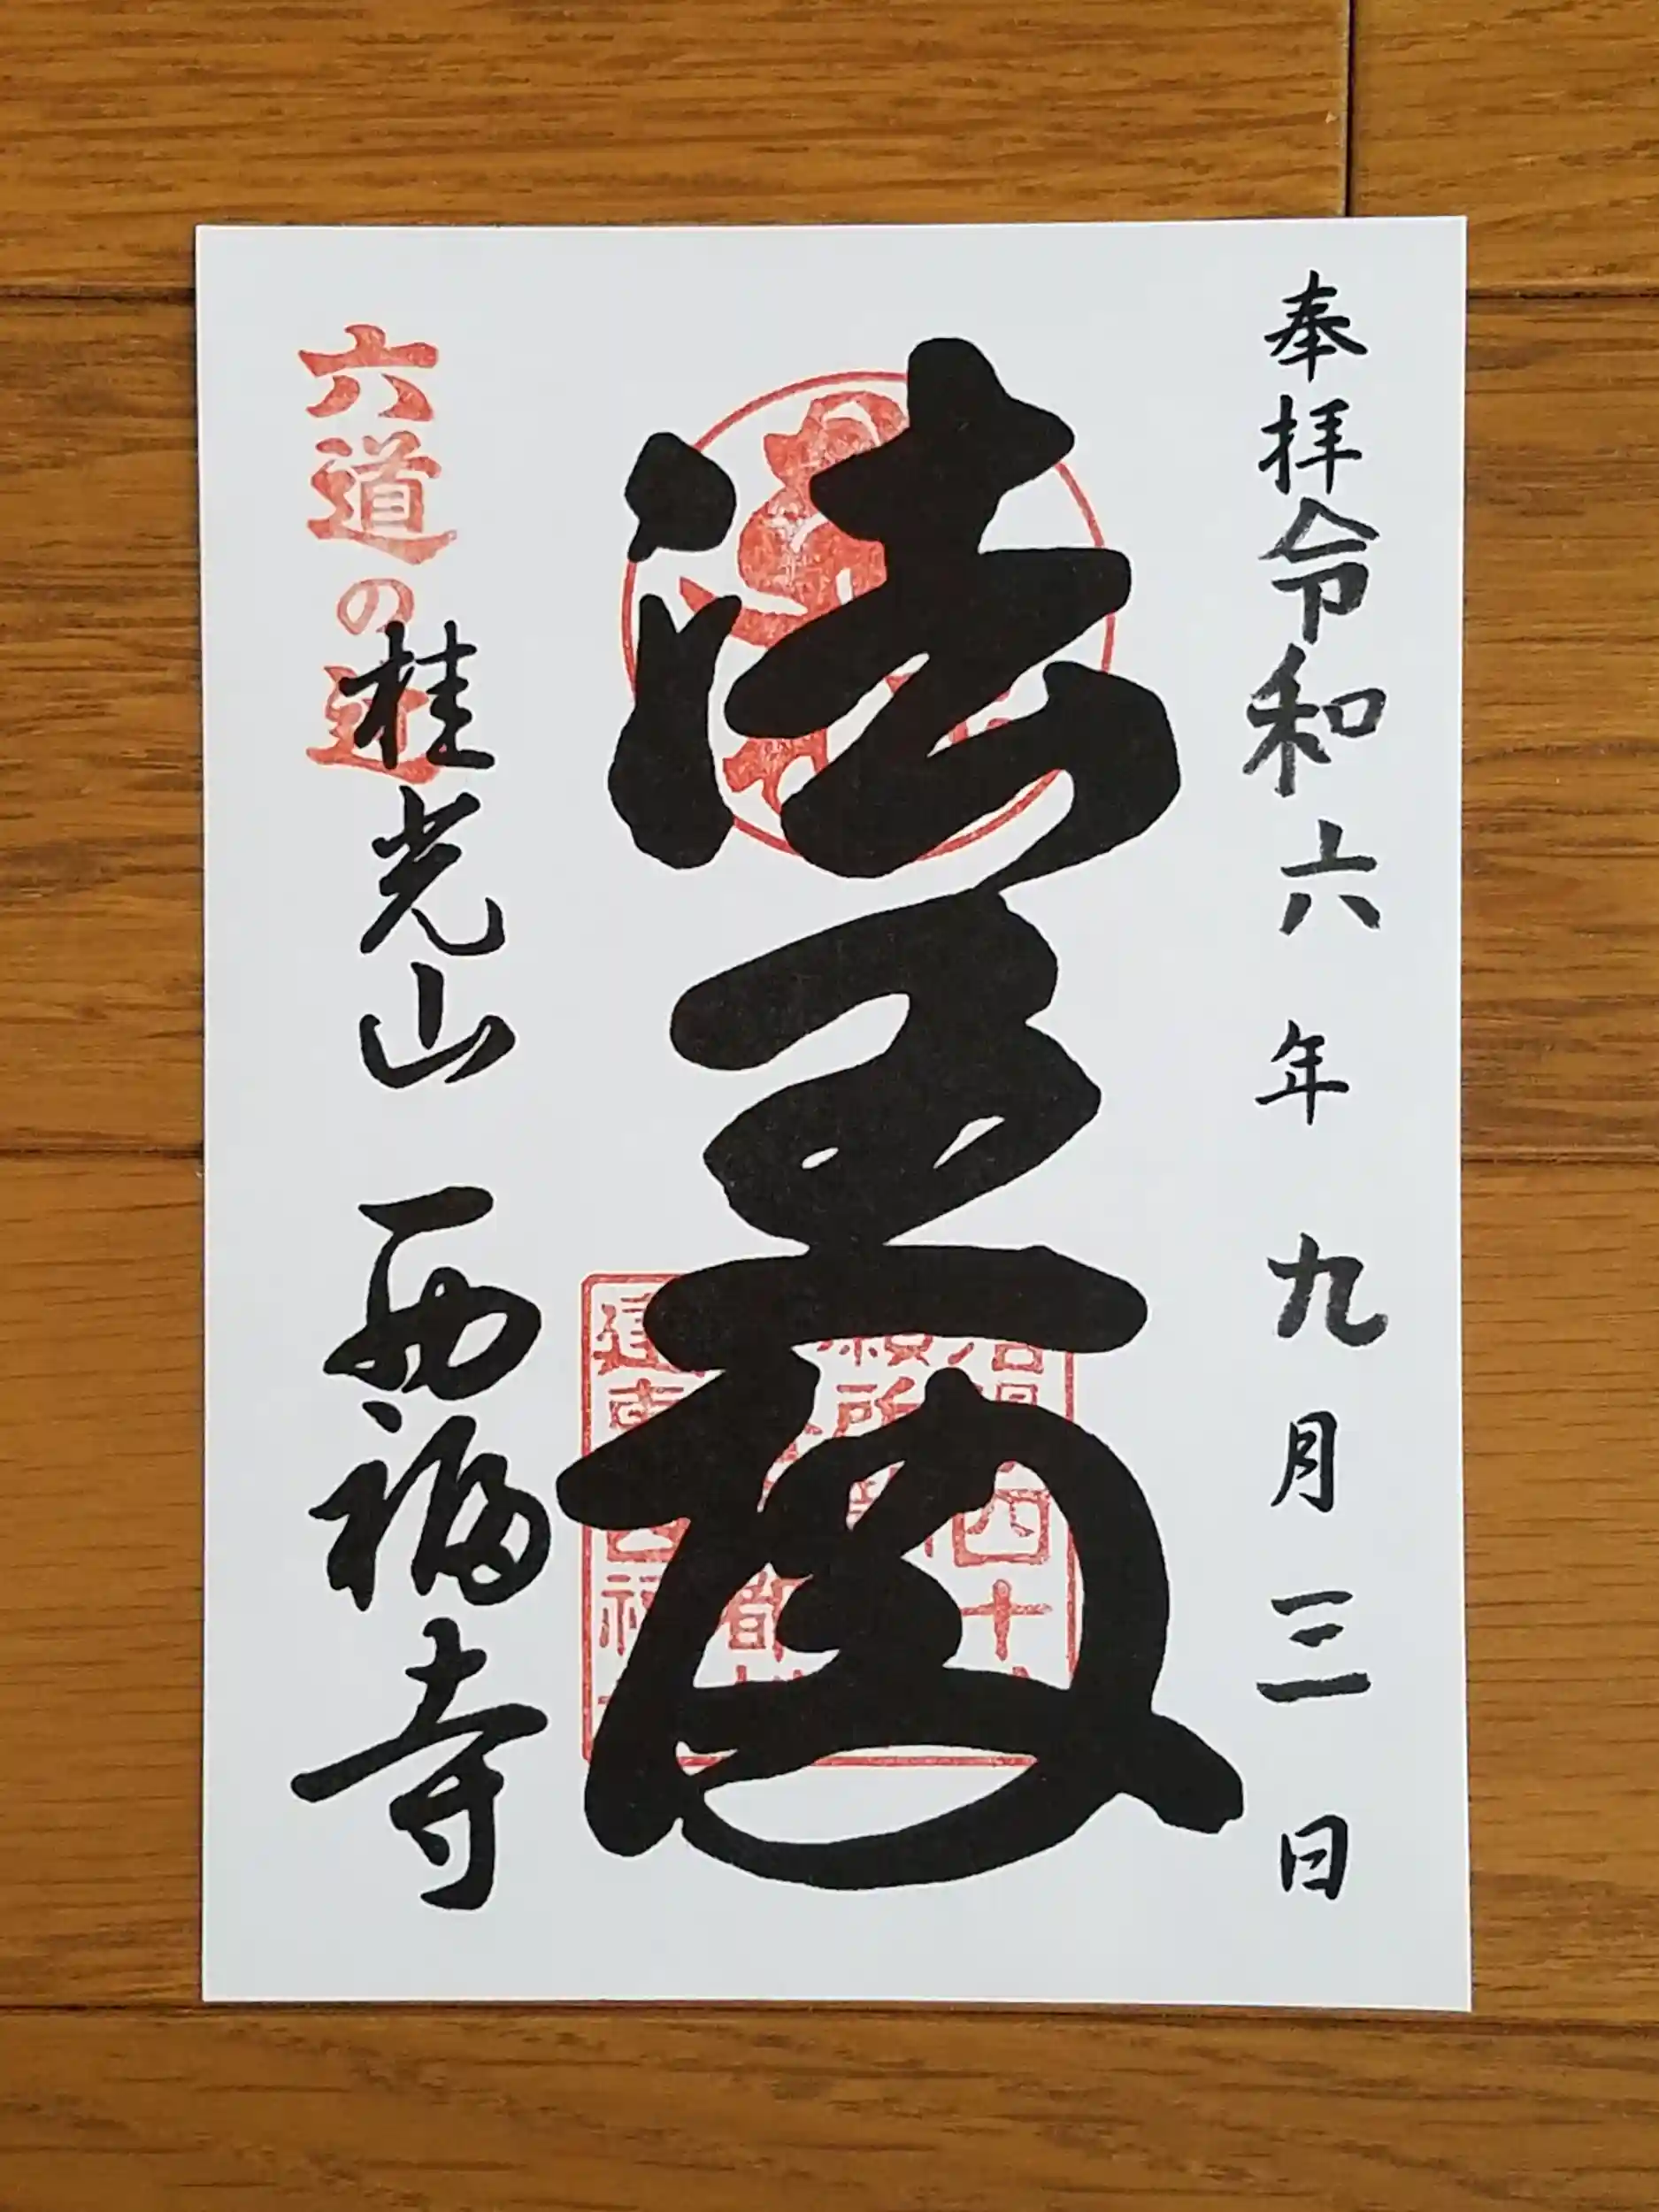 奉拝令和六年九月三日
法王閣
桂光山 西福寺
六道の辻
四十